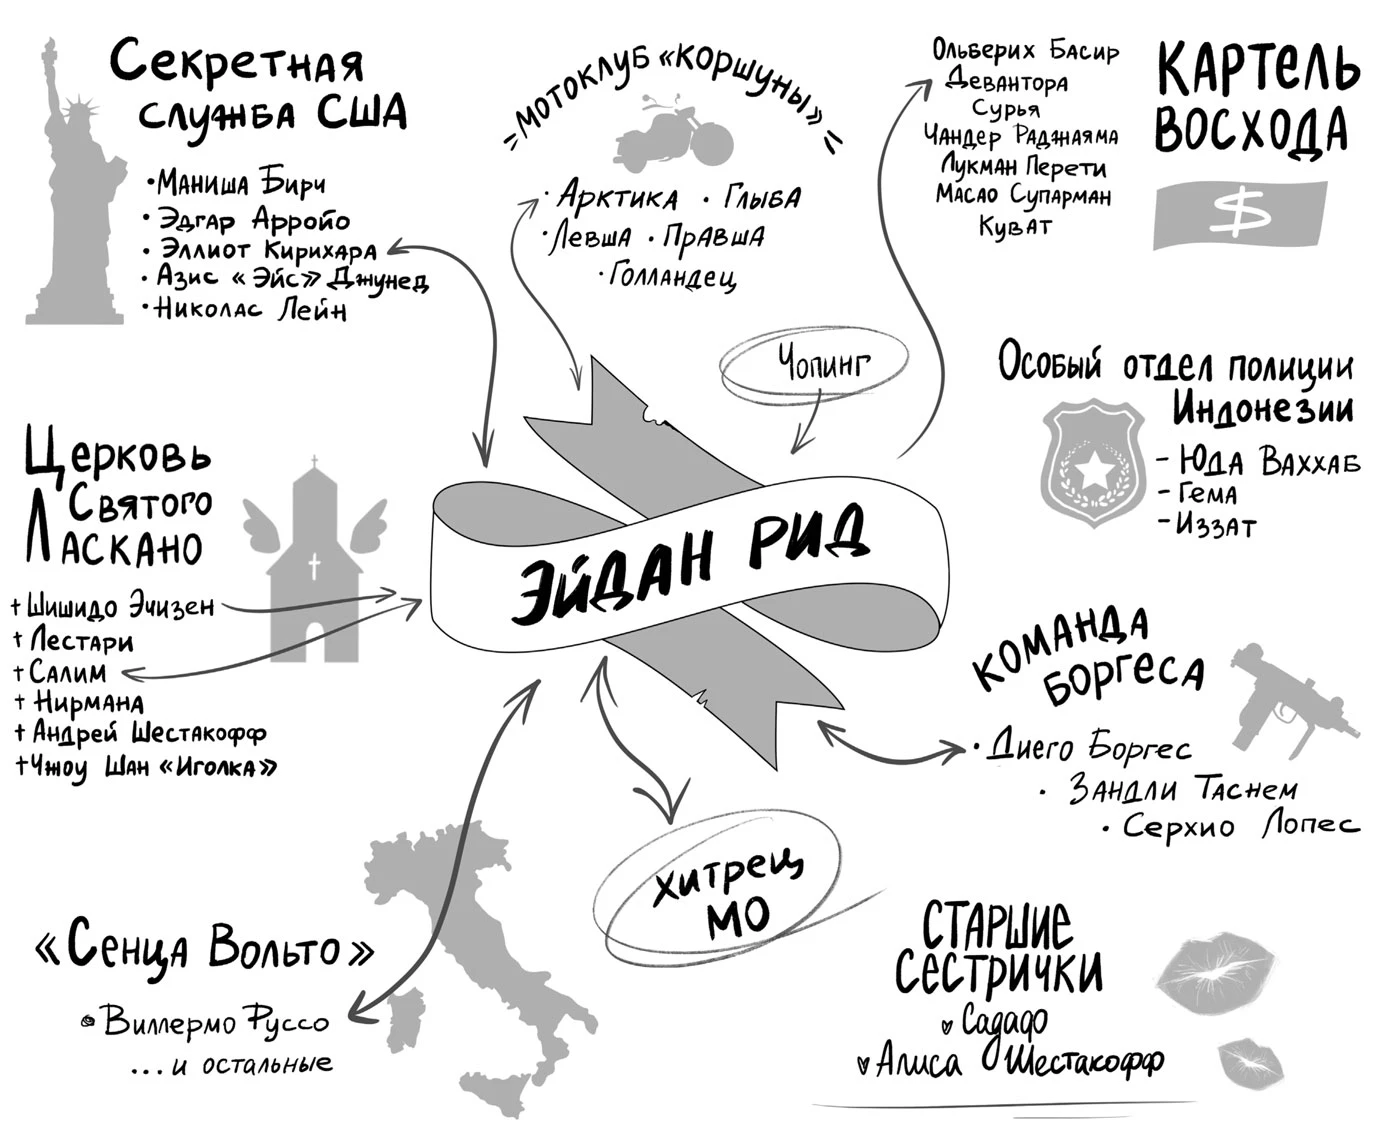 Секретная
служба США
• Маниша Бирч
• Эдгар Арройо
• Эллиот Кирихара
• Азис «Эйс» Джунед
• Николас Лейн
МОТОКЛУБ «КОРШУНЫ»
• Арктика • Глыба
• Левша • Правша
• Голландец
КАРТЕЛЬ
ВОСХОДА
Ольберих Басир
Девантора
Сурья
Чандер Раджаяма
Лукман Перети
Масао Супарман
Куват
$
Чопинг
Особый отдел полиции
Индонезии
- Юда Ваххаб
- Гема
- Иззат
Церковь
Святого
Ласкано
+ Шишидо Эчизен
+ Лестари
+ Салим
+ Нирмана
+ Андрей Шестакофф
+ Чжоу Шан «Иголка»
ЭЙДАН РИД
КОМАНДА
БОРГЕСА
• Диего Боргес
• Зандли Таснем
• Серхио Лопес
ХИТРЕЦ
МО
«Сенца Вольто»
• Виллермо Руссо
...и остальные
СТАРШИЕ
СЕСТРИЧКИ
Садафо
Алиса Шестакофф